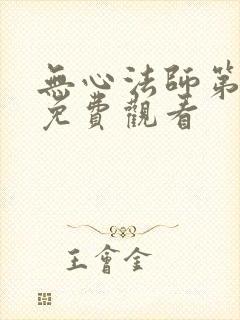 無心法師第
免費觀看
王會金